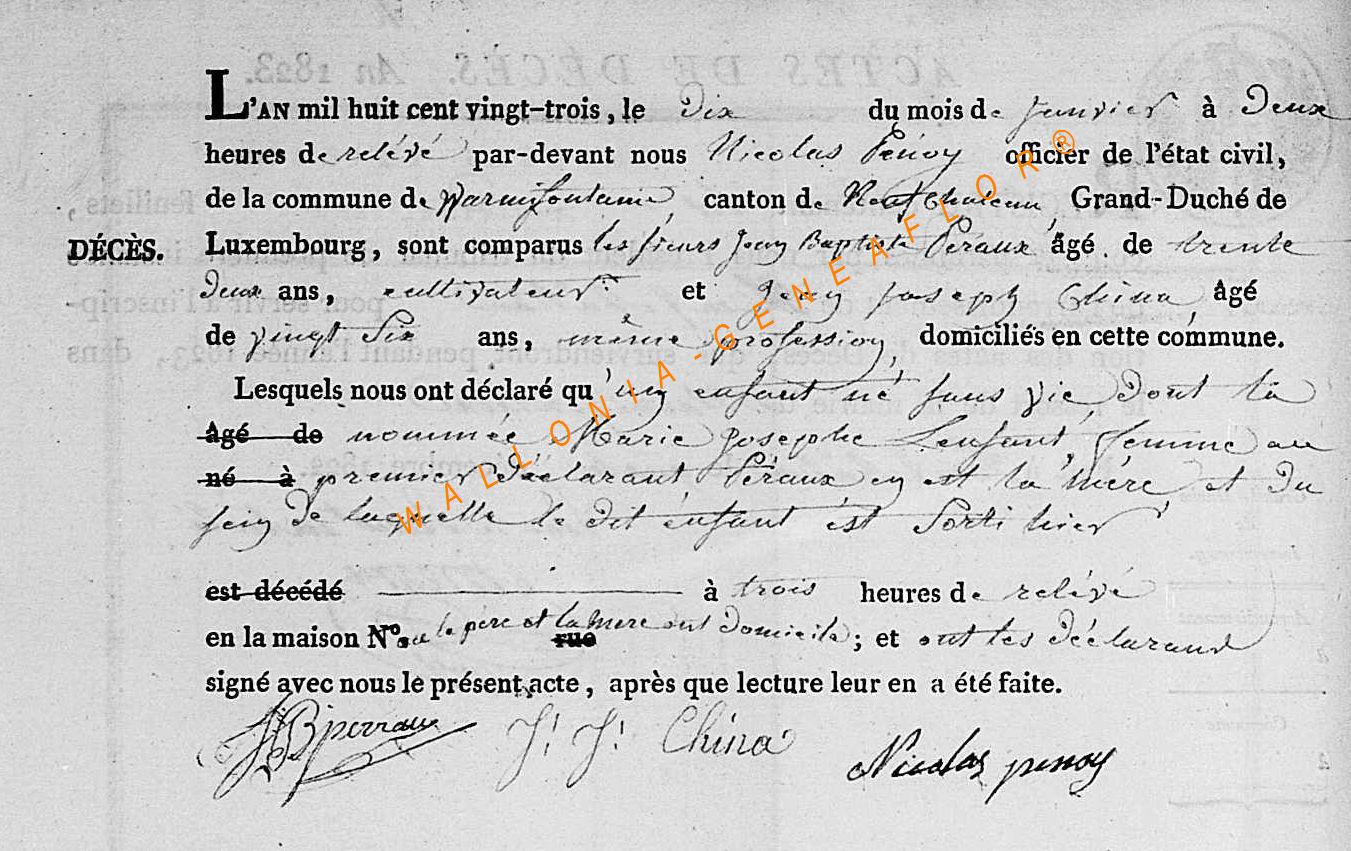 L'AN mil huit cent vingt-trois, le Dix du mois de janvier à Deux
heures de relévé par-devant nous Nicolas Penoy officier de l'état civil,
de la commune de Warmifontaine canton de Neufchateau Grand-Duché de
DÉCÈS. Luxembourg, sont comparus les sieurs Jean Baptiste Péraux âgé de trente
deux ans, cultivateur et Jean joseph China âgé
de vingt Six ans, même profession, domiciliés en cette commune.
Lesquels nous ont déclaré qu'un enfant né sans vie Dont la
âgé de nommée Marie josephe Lenfant, femme au
né à premier Déclarant Péraux en est la mère et du
sein de laquelle le dit enfant est Sorti hier
est décédé à trois heures de relévé
en la maison N° ou le père et la mere ont Domicile rue ; et ont les Déclarans
signé avec nous le présent acte, après que lecture leur en a été faite.
JB perraux J. J. China Nicolas penoy
WALLONIA-GENEAFLOR®